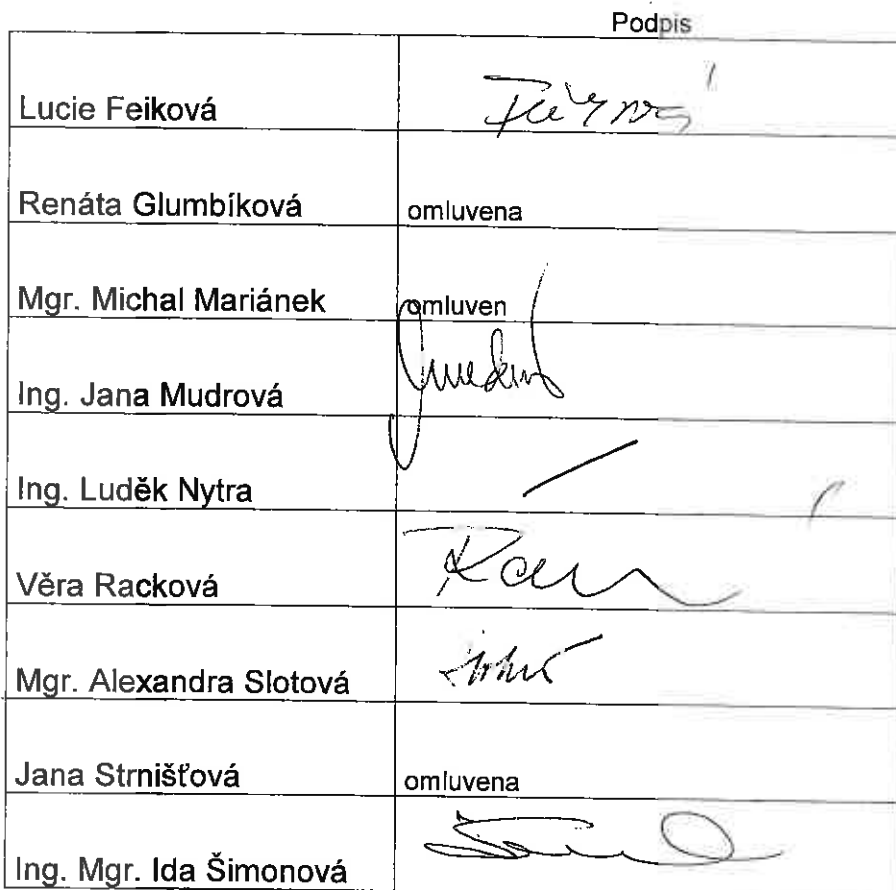 Podpis
Lucie Feiková
Renáta Glumbíková omluvena
Mgr. Michal Mariánek omluven
Ing. Jana Mudrová
Ing. Luděk Nytra
Věra Racková
Mgr. Alexandra Slotová
Jana Strnišťová omluvena
Ing. Mgr. Ida Šimonová